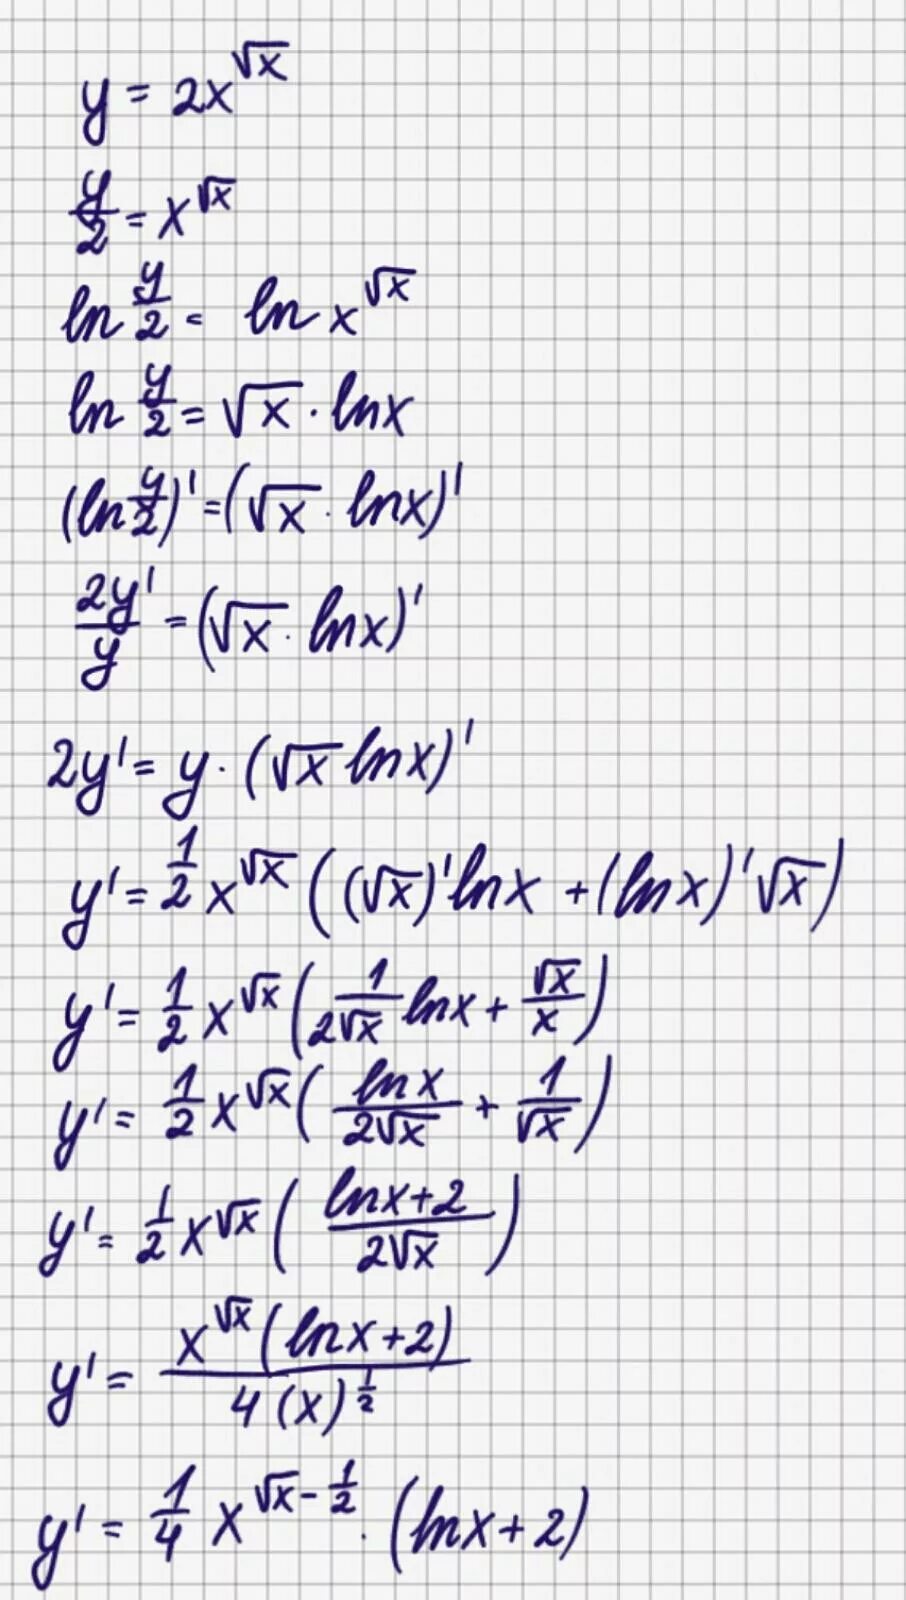 y = 2x^{√x}
y/2 = x^{√x}
ln y/2 = ln x^{√x}
ln y/2 = √x · lnx
(ln y/2)' = (√x · lnx)'
2y'/y = (√x · lnx)'
2y' = y · (√x lnx)'
y' = 1/2 x^{√x} ((√x)' lnx + (lnx)' √x)
y' = 1/2 x^{√x} (1/(2√x) lnx + √x/x)
y' = 1/2 x^{√x} (lnx/(2√x) + 1/√x)
y' = 1/2 x^{√x} ((lnx+2)/(2√x))
y' = x^{√x}(lnx+2) / 4(x)^{1/2}
y' = 1/4 x^{√x - 1/2} · (lnx+2)